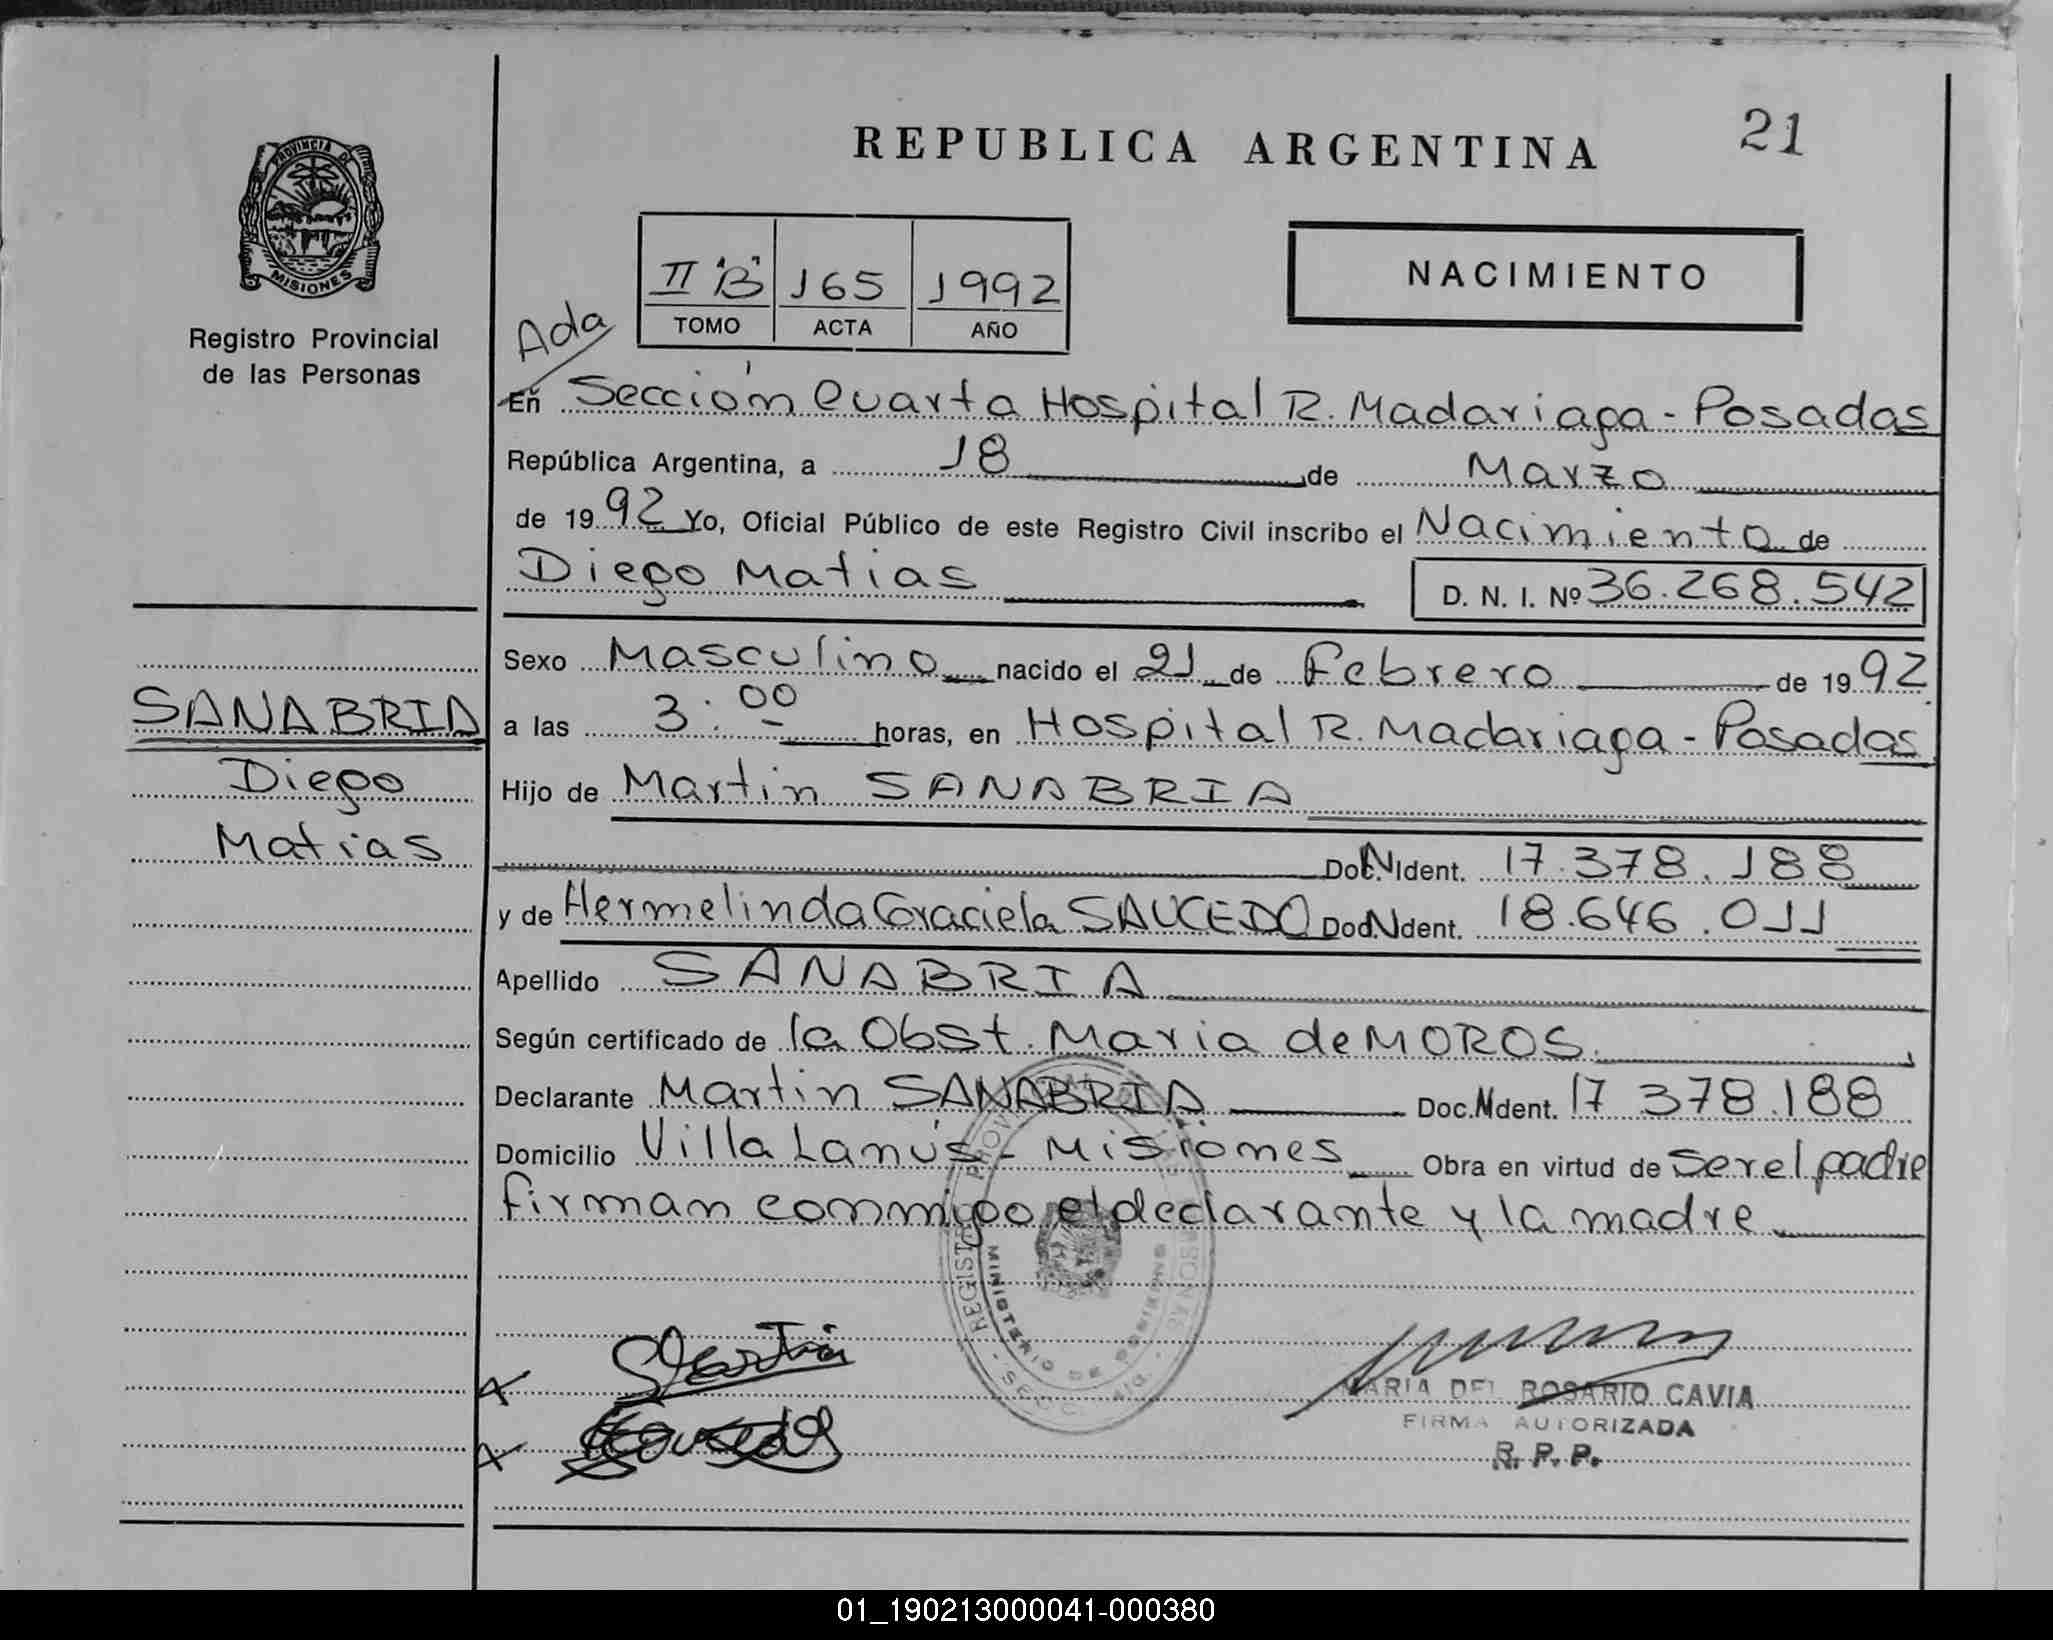 REPUBLICA ARGENTINA
21
PROVINCIA DE
MISIONES
Registro Provincial
de las Personas
II "B" 165 1992
TOMO ACTA AÑO
NACIMIENTO
Ada
En Sección Cuarta Hospital R. Madariaga - Posadas
República Argentina, a 18 de Marzo
de 1992 Yo, Oficial Público de este Registro Civil inscribo el Nacimiento de
Diego Matias D. N. I. Nº 36.268.542
Sexo Masculino nacido el 21 de Febrero de 1992
a las 3:00 horas, en Hospital R. Madariaga - Posadas
Hijo de Martin SANABRIA
Doc.N.Ident. 17.378.188
y de Hermelinda Graciela SAUCEDO Doc.N.Ident. 18.646.011
Apellido SANABRIA
Según certificado de la Obst. Maria de MOROS.
Declarante Martin SANABRIA Doc.N.Ident. 17 378.188
Domicilio Villa Lanús - Misiones Obra en virtud de ser el padre
firman conmigo el declarante y la madre
SANABRIA
Diego
Matias
MINISTERIO DE
MARIA DEL ROSARIO CAVIA
FIRMA AUTORIZADA
R. P. P.
01_190213000041-000380